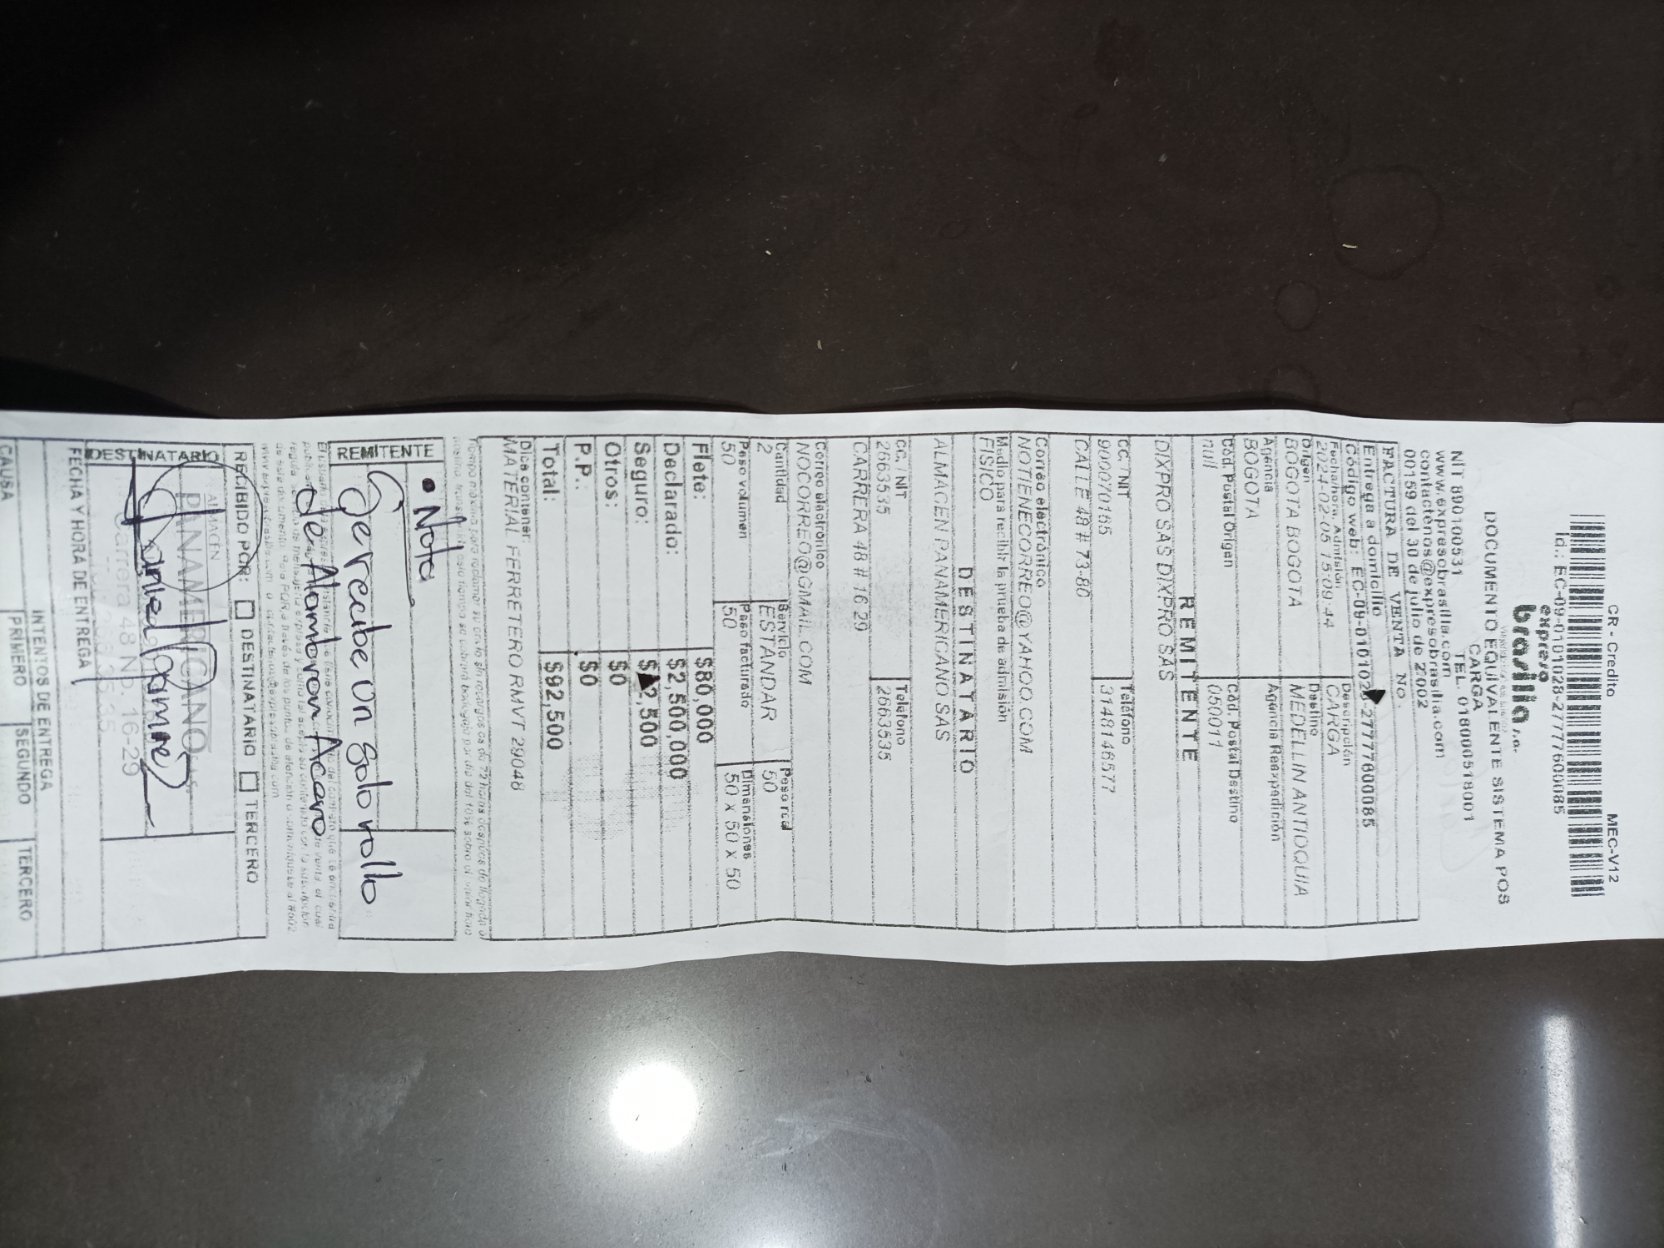 CR - Credito MEC-V12
Id.: EC-09-0101028-277776000085
expreso
brasilia s.a.
DOCUMENTO EQUIVALENTE SISTEMA POS
CARGA
NIT 890100531 TEL. 018000518001
www.expresobrasilia.com
contactenos@expresobrasilia.com
00159 del 30 de julio de 2002
FACTURA DE VENTA No.
Entrega a domicilio
Código web: EC-09-0101028-277776000085
Fecha/hora Admisión Descripción
2024-02-05 15:09:44 CARGA
Origen Destino
BOGOTA BOGOTA MEDELLIN ANTIOQUIA
Agencia Agencia Reexpedición
BOGOTA
Cód. Postal Origen Cód. Postal Destino
null 050011
REMITENTE
DIXPRO SAS DIXPRO SAS
CC. / NIT Teléfono
900070165 3148146577
CALLE 48 # 73-80
Correo electrónico
NOTIENECORREO@YAHOO.COM
Medio para recibir la prueba de admisión
FISICO
DESTINATARIO
ALMACEN PANAMERICANO SAS
CC. / NIT Teléfono
2663535 2663535
CARRERA 48 # 16 29
Correo electrónico
NOCORREO@GMAIL.COM
Cantidad Servicio Peso real
2 ESTANDAR 50
Peso volumen Peso facturado Dimensiones
50 50 50 x 50 x 50
Flete: $80,000
Declarado: $2,500,000
Seguro: 2,500
Otros: $0
P.P.: $0
Total: $92,500
Dice contener:
MATERIAL FERRETERO RMVT 29048
REMITENTE
• Nota
Se recibe un solo rollo
de Alambron Acaro
RECIBIDO POR: DESTINATARIO TERCERO
DESTINATARIO
ALMACÉN
PANAMERICANO
Carrera 48 No. 16-29
FECHA Y HORA DE ENTREGA
INTENTOS DE ENTREGA
CAUSA PRIMERO SEGUNDO TERCERO